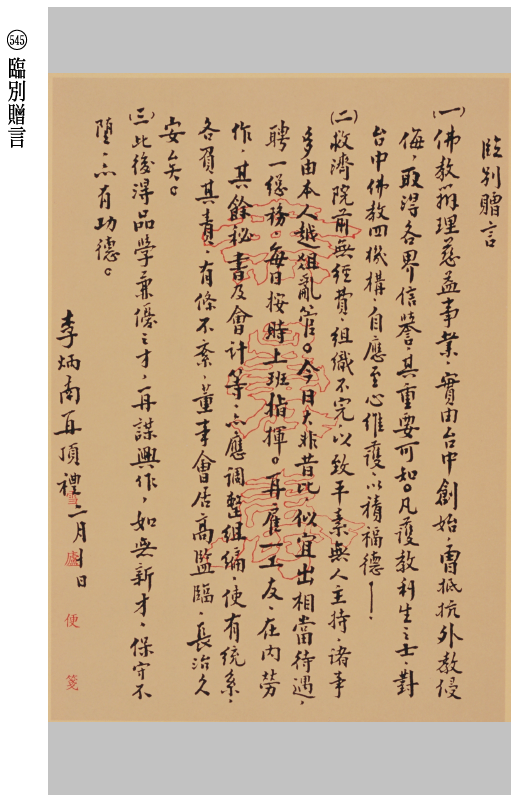 545 臨別贈言
臨別贈言
(一)佛教辦理慈益事業，實由台中創始，曾抵抗外教侵
侮，取得各界信譽，其重要可知。凡護教利生之士，對
台中佛教四機構，自應至心維護，以積福德。
(二)救濟院前無經費，組織不完，以致平素無人主持，諸事
多由本人越俎亂管。今日大非昔比，似宜出相當待遇，
聘一總務。每日按時上班指揮。再雇一工友，在內勞
作，其餘秘書及會計等，亦應調整組編，使有統系，
各負其責，有條不紊，董事會居高監臨，長治久
安矣。
(三)此後得品學兼優之才，再謀興作，如無新才，保守不
墮，亦有功德。
李炳南再頂禮 二月 日
雪廬便箋